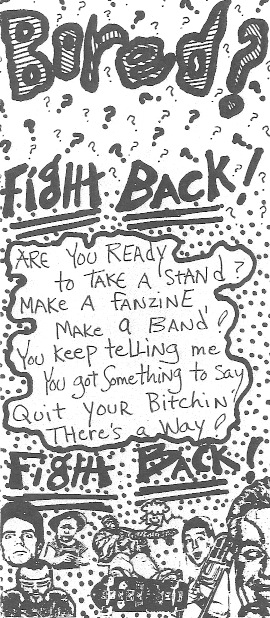 Bored?
Fight BACK!
ARE YOU READY
to TAKE A STANd?
MAKE A FANZINE,
MAKE a BAND!
You keep telling me
You got Something to Say
Quit YOUR Bitchin'
THere's a Way!
Fight BACK!